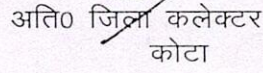 अति0 जिला कलेक्टर
कोटा